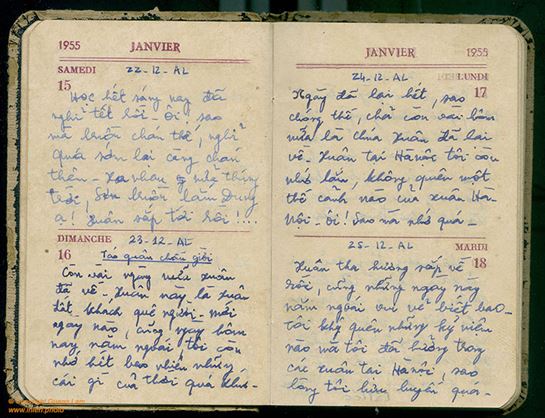 1955 JANVIER
SAMEDI 22-12-AL
15
Học hết sáng nay đã
nghỉ tết rồi. Ôi, sao
mà buồn chán thế, nghỉ
quá sớm lại càng chán
thêm - Xa nhau cả nửa tháng
trời, Sơn buồn lắm Dung
ạ! Xuân sắp tới rồi!...
DIMANCHE 23-12-AL
16 Táo quân chầu giời
Còn vài ngày nữa xuân
đã về - Xuân này là xuân
đất khách quê người - mới
ngày nào, cũng ngày hôm
nay năm ngoái tôi còn
nhớ hết bao nhiêu những
cái gì của thời quá khứ -
JANVIER 1955
24-12-AL LUNDI
17
Ngày đã lại hết, sao
chóng thế, chỉ còn vài hôm
nữa là chúa Xuân đã lại
về. Xuân tại Hànội tôi còn
nhớ lắm, không quên một
thể cảnh nào của xuân Hà-
Nội - Ôi! Sao mà nhớ quá -
25-12-AL MARDI
18
Xuân tha hương sắp về
rồi, cũng những ngày này
năm ngoái vui vẻ biết bao -
tôi không quên những kỷ niệm
nào mà tôi đã hưởng trong
các xuân tại Hànội, sao
lòng tôi lưu luyến quá -
www.thien.photo